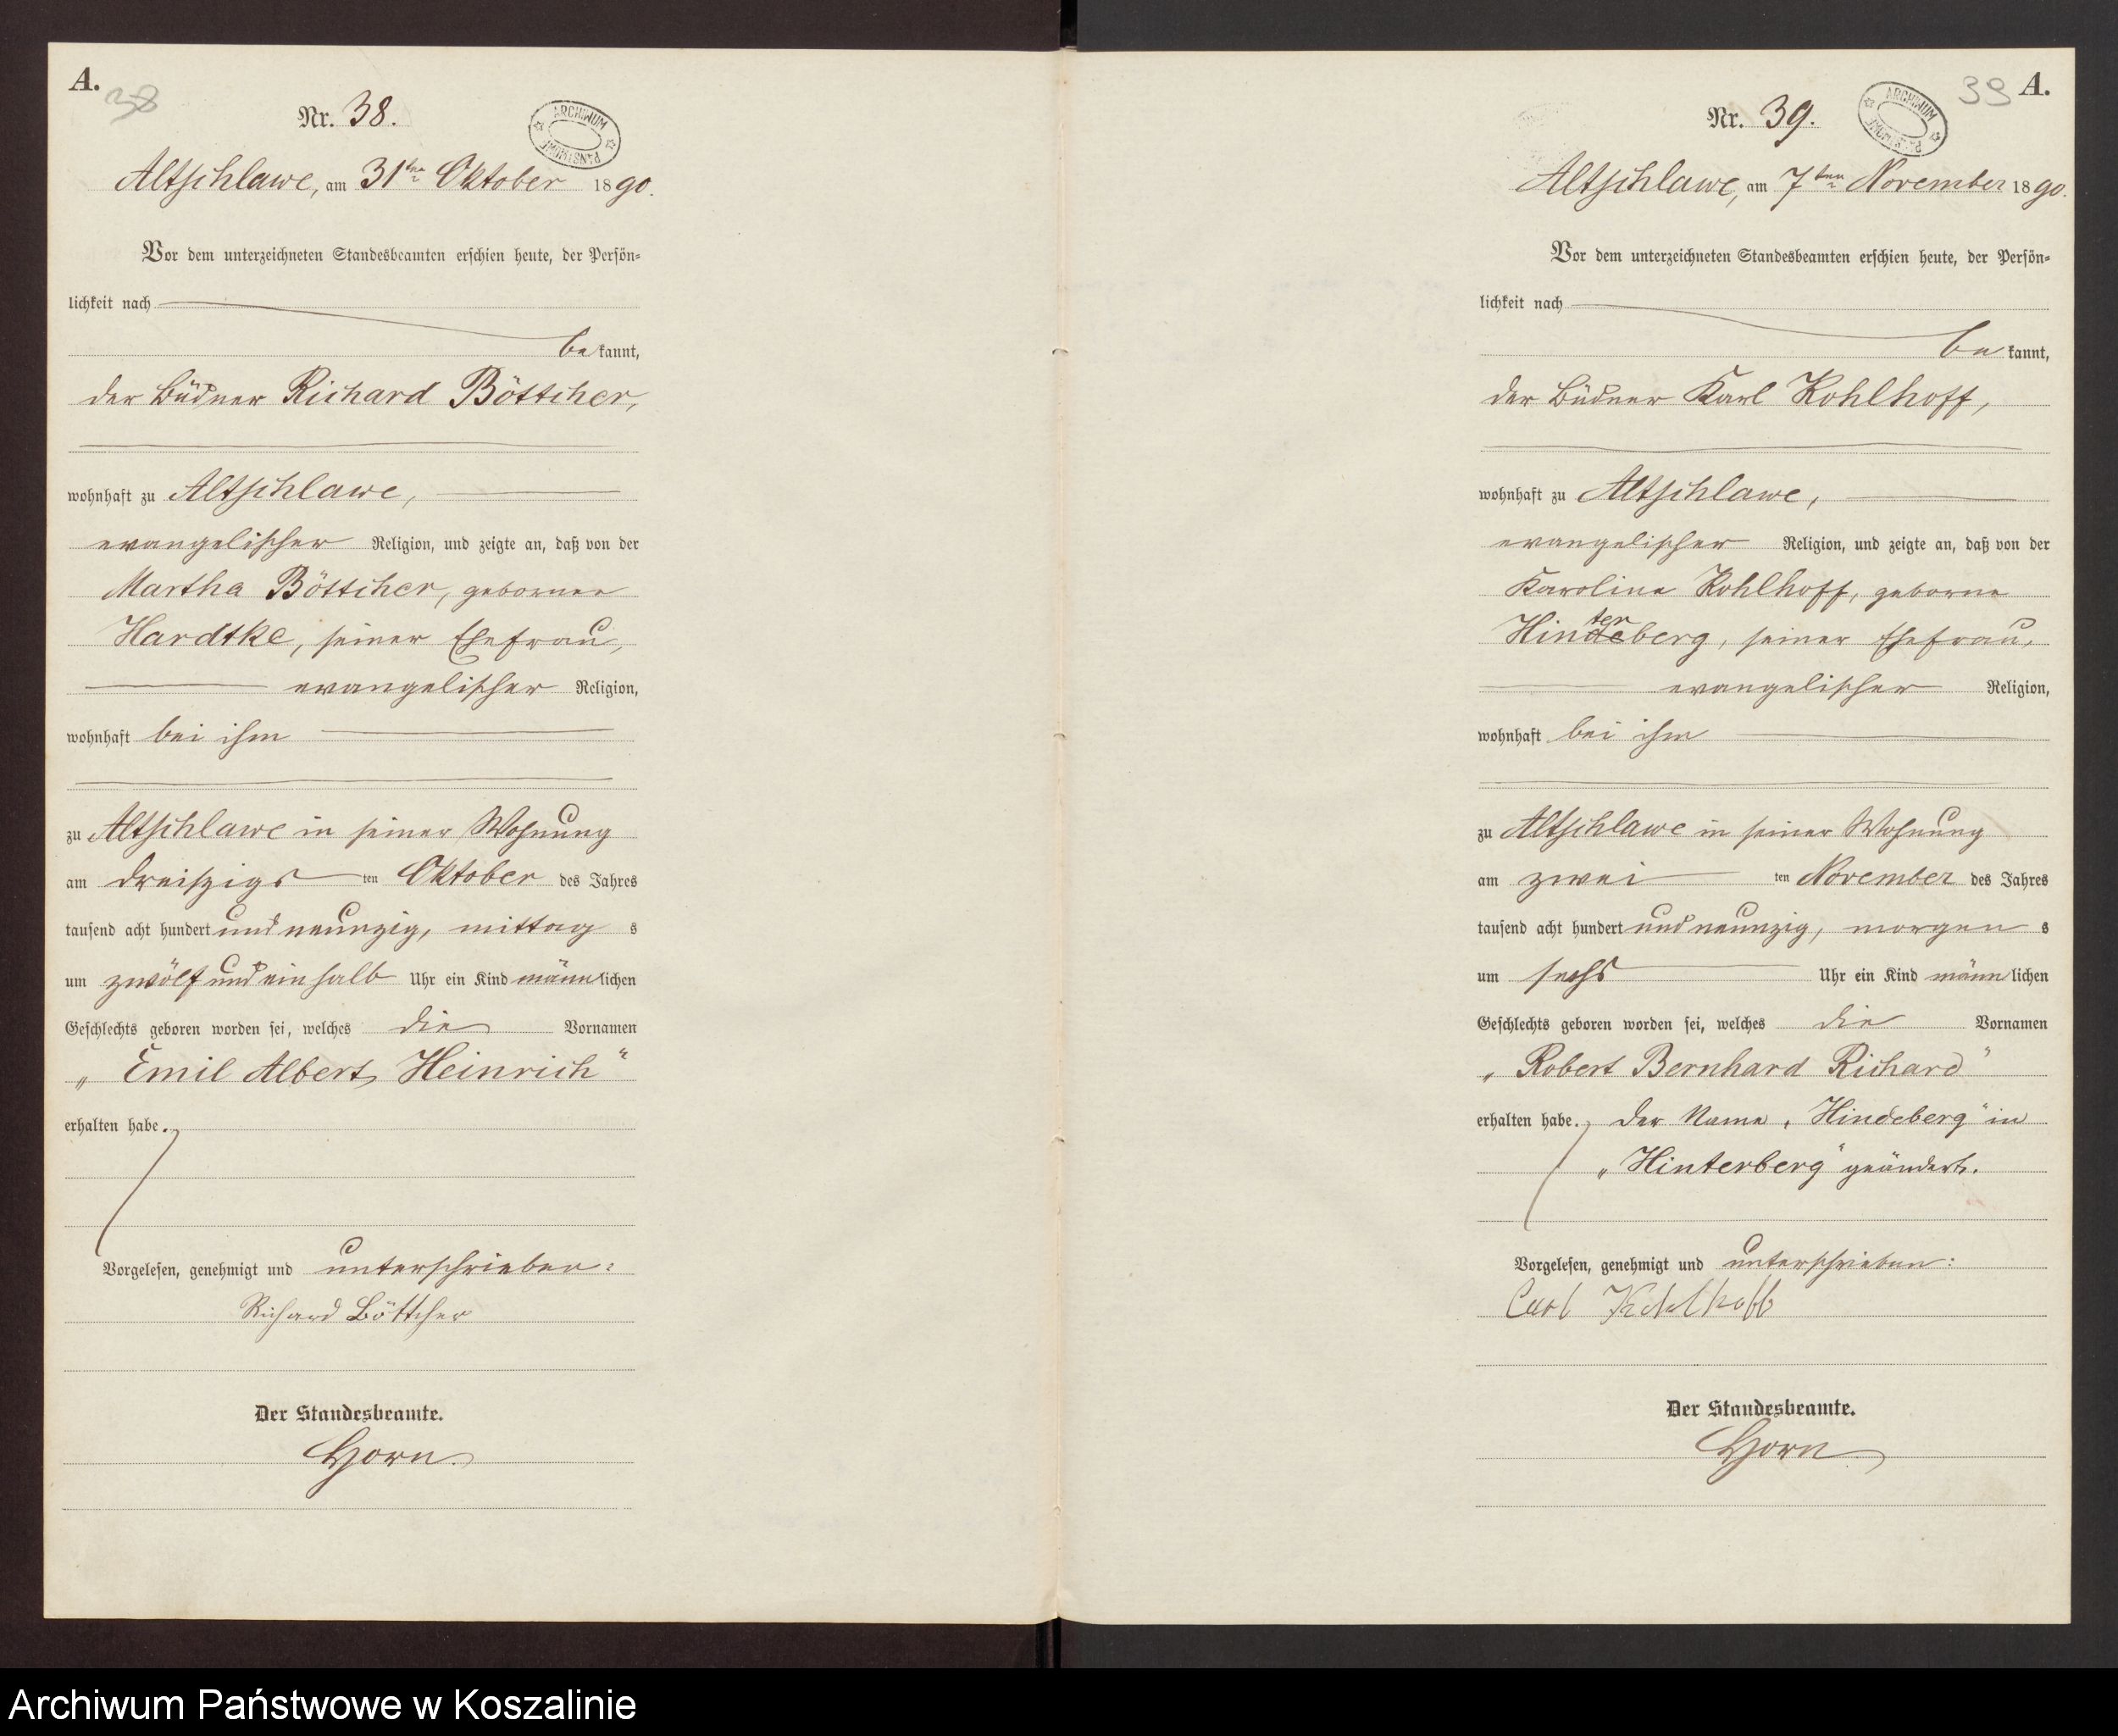 A.
38
Nr. 38.
ARCHIWUM PAŃSTWOWE
Altschlawe, am 31ten Oktober 1890.
Vor dem unterzeichneten Standesbeamten erschien heute, der Persön-
lichkeit nach
bekannt,
der Büdner Richard Böttcher,
wohnhaft zu Altschlawe,
evangelischer Religion, und zeigte an, daß von der
Martha Böttcher, gebornen
Hardtke, seiner Ehefrau,
evangelischer Religion,
wohnhaft bei ihm
zu Altschlawe in seiner Wohnung
am dreißigsten Oktober des Jahres
tausend acht hundert und neunzig, mittags
um zwölf und ein halb Uhr ein Kind männlichen
Geschlechts geboren worden sei, welches die Vornamen
„Emil Albert Heinrich“
erhalten habe.
Vorgelesen, genehmigt und unterschrieben:
Richard Böttcher
Der Standesbeamte.
Horn.
39 A.
Nr. 39.
ARCHIWUM PAŃSTWOWE
Altschlawe, am 7ten November 1890.
Vor dem unterzeichneten Standesbeamten erschien heute, der Persön-
lichkeit nach
bekannt,
der Büdner Karl Kohlhoff,
wohnhaft zu Altschlawe,
evangelischer Religion, und zeigte an, daß von der
Karoline Kohlhoff, geborne
ter
Hindeberg, seiner Ehefrau,
evangelischer Religion,
wohnhaft bei ihm
zu Altschlawe in seiner Wohnung
am zweiten November des Jahres
tausend acht hundert und neunzig, morgens
um sechs Uhr ein Kind männlichen
Geschlechts geboren worden sei, welches die Vornamen
„Robert Bernhard Richard“
erhalten habe. Der Name „Hindeberg“ in
„Hinterberg“ geändert.
Vorgelesen, genehmigt und unterschrieben:
Carl Kohlhoff
Der Standesbeamte.
Horn
Archiwum Państwowe w Koszalinie